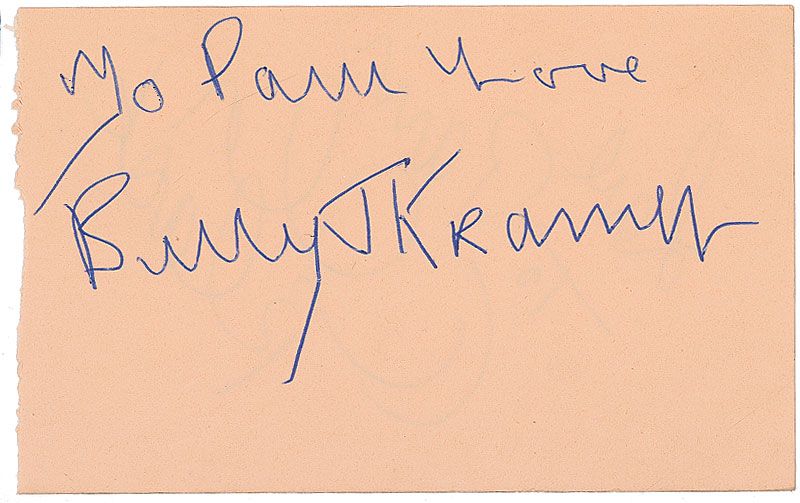 To Pam Love
Billy J Kramer